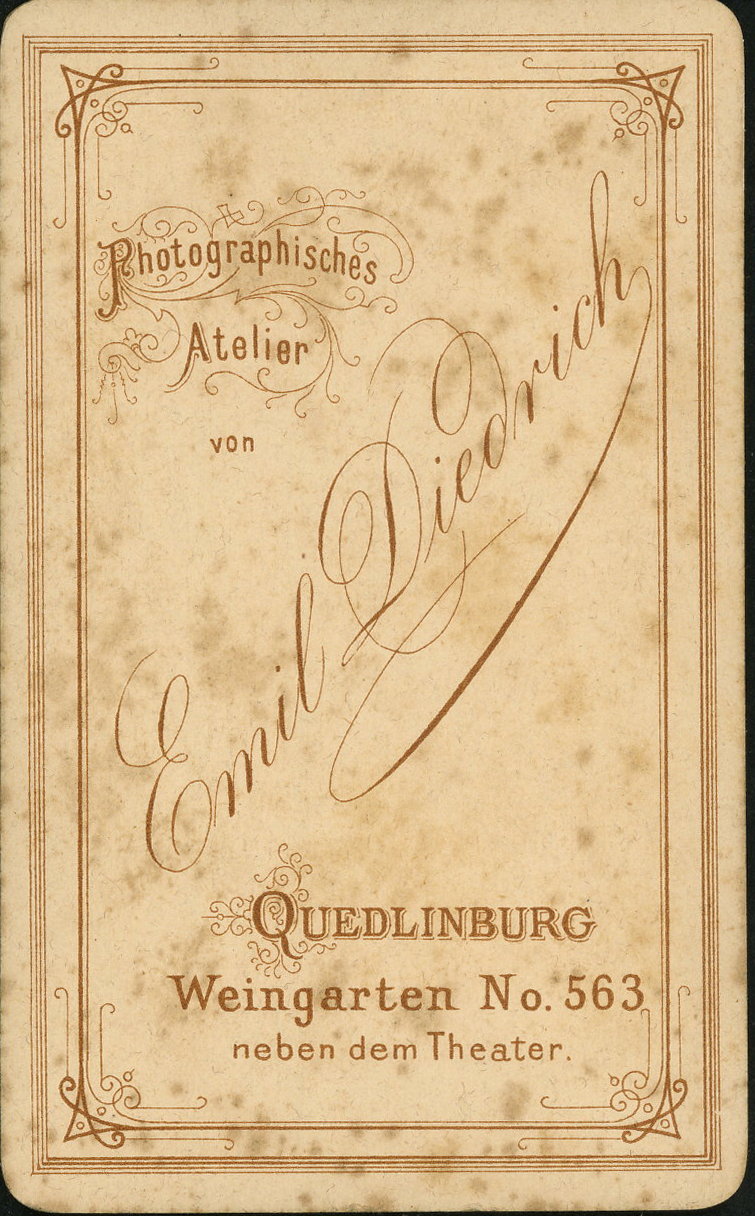 Photographisches
Atelier
von
Emil Diedrich
QUEDLINBURG
Weingarten No. 563
neben dem Theater.